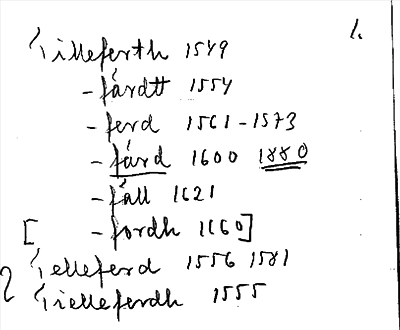 Gilleferth 1549
- fårdtt 1554
- ferd 1561-1573
- fård 1600 1880
- fäll 1621
[ - fordh 1660]
Gelleferd 1556 1581
Gielleferdh 1555
1.